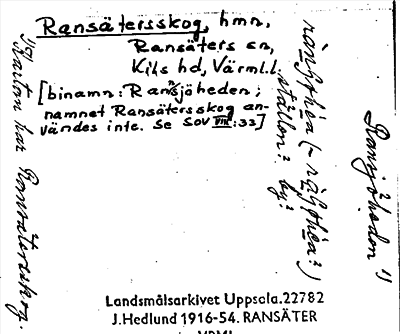 Ransätersskog, hmn,
Ransäters sn,
Kils hd, Värml.l.
[binamn: Ransjöheden;
namnet Ransätersskog an-
vändes inte. Se SOV VIII:33]
ställen? by?
Ransjöheden 1)
1) Kartan har Ransätersskog.
Landsmålsarkivet Uppsala.22782
J.Hedlund 1916-54. RANSÄTER
VRML